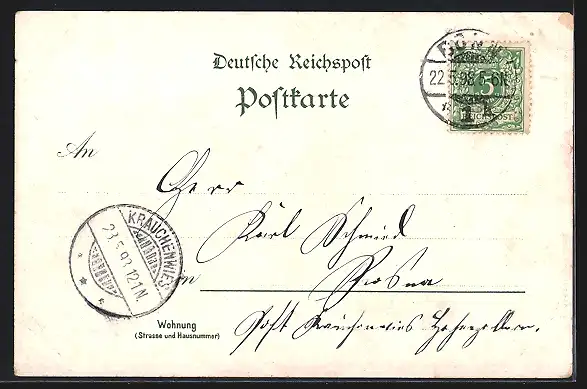 Deutsche Reichspost
Postkarte
BONN
22.5.98 5-6N
1
5
REICHSPOST
An
Herr
Karl Schmied
in Rosna
Post Krauchenwies Hohenzollern.
KRAUCHENWIES
23.5.98 12-1N
Wohnung
(Strasse und Hausnummer)